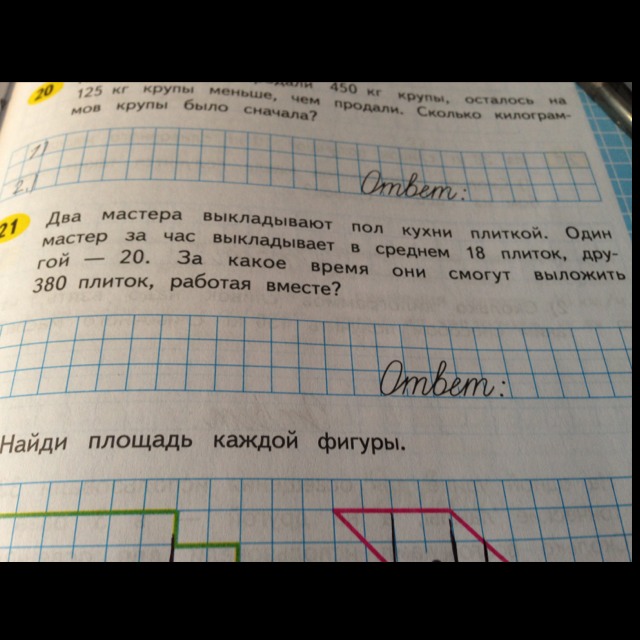 20
одали 450 кг крупы, осталось на
125 кг крупы меньше, чем продали. Сколько килограм-
мов крупы было сначала?
1)
2.)
Ответ:
21 Два мастера выкладывают пол кухни плиткой. Один
мастер за час выкладывает в среднем 18 плиток, дру-
гой — 20. За какое время они смогут выложить
380 плиток, работая вместе?
Ответ:
Найди площадь каждой фигуры.